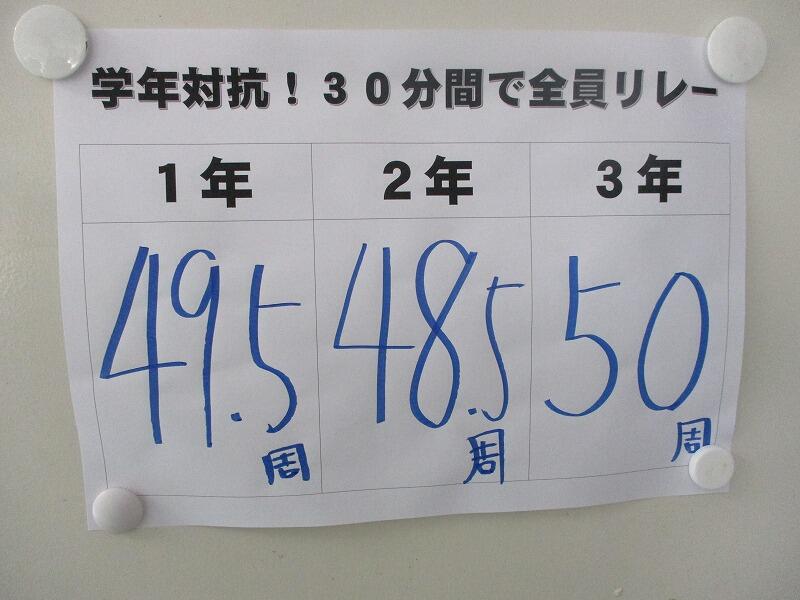 学年対抗！３０分間で全員リレー
１年 ２年 ３年
49.5 48.5 50
周 周 周